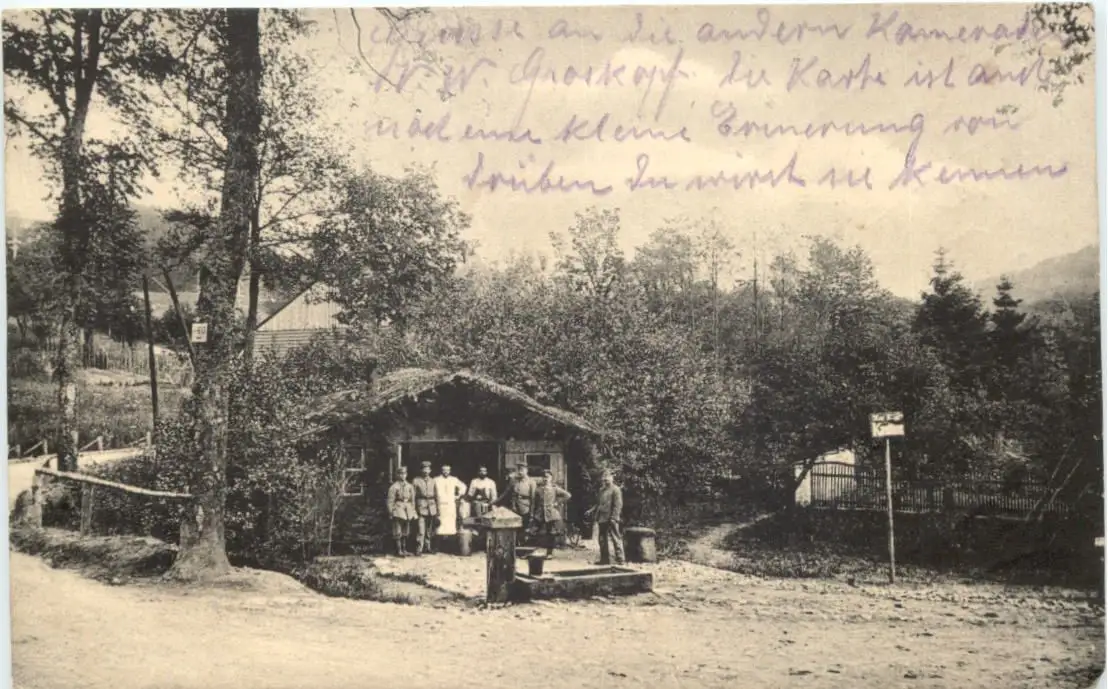 Grüsse an die andern Kameraden
W. W. Groskopf. die Karte ist auch
noch eine kleine Erinerung von
drüben du wirst sie kennen